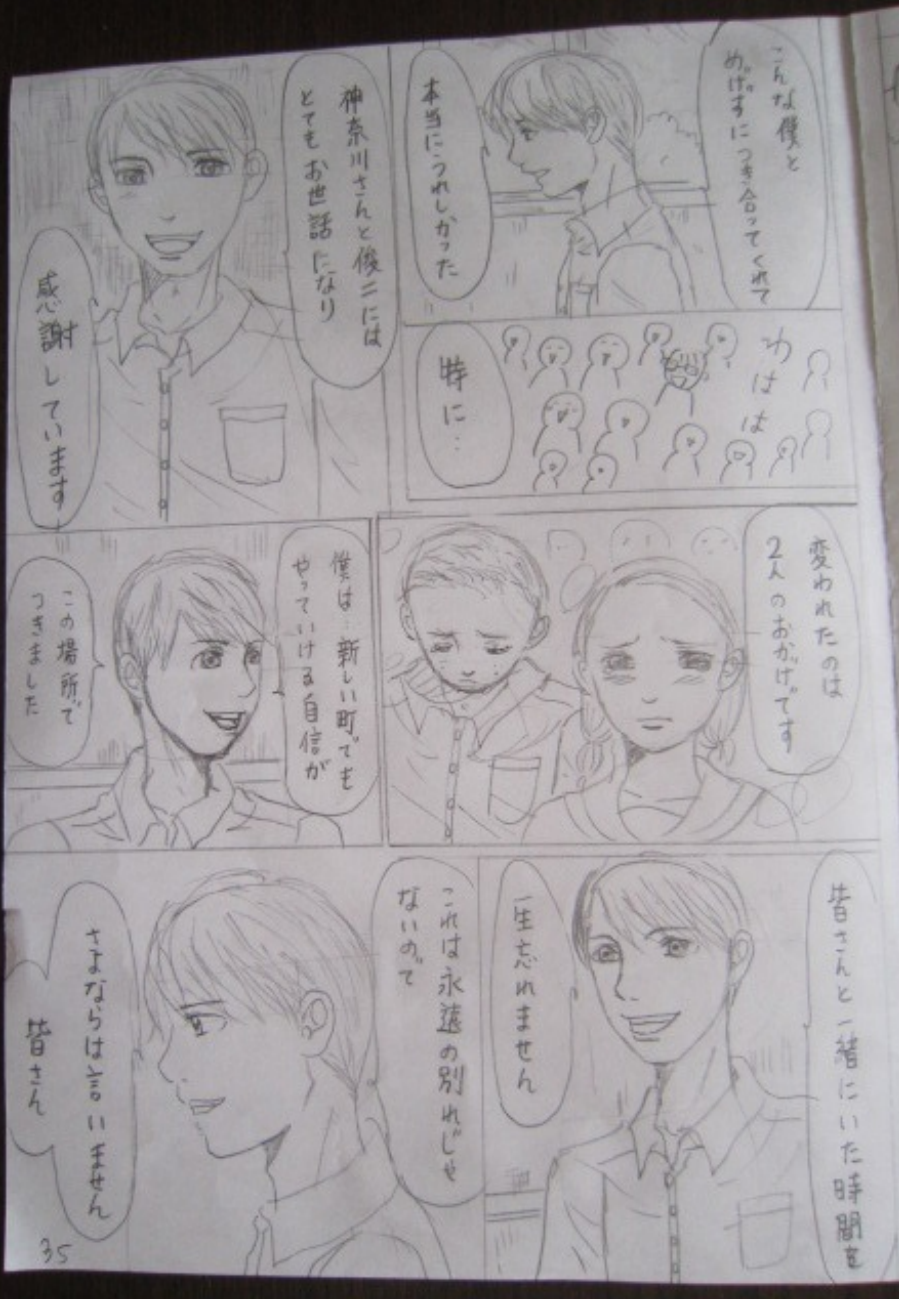 こんな僕と
めげずにつき合ってくれて
本当にうれしかった
わはは
特に…
神奈川さんと俊二には
とてもお世話になり
感謝しています
変われたのは
2人のおかげです
僕は…新しい町でも
やっていける自信が
この場所で
つきました
皆さんと一緒にいた時間を
一生忘れません
これは永遠の別れじゃ
ないので
さよならは言いません
皆さん
35